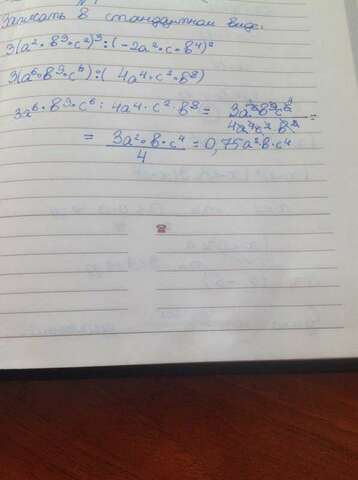 Записать в стандартном виде:
3(a²·b³·c²)³:(-2a²·c·b⁴)²
3(a⁶·b⁹·c⁶):(4a⁴·c²·b⁸)
3a⁶·b⁹·c⁶:4a⁴·c²·b⁸ = 3a⁶b⁹c⁶/4a⁴c²·b⁸ =
= 3a²·b·c⁴/4 = 0,75a²b·c⁴